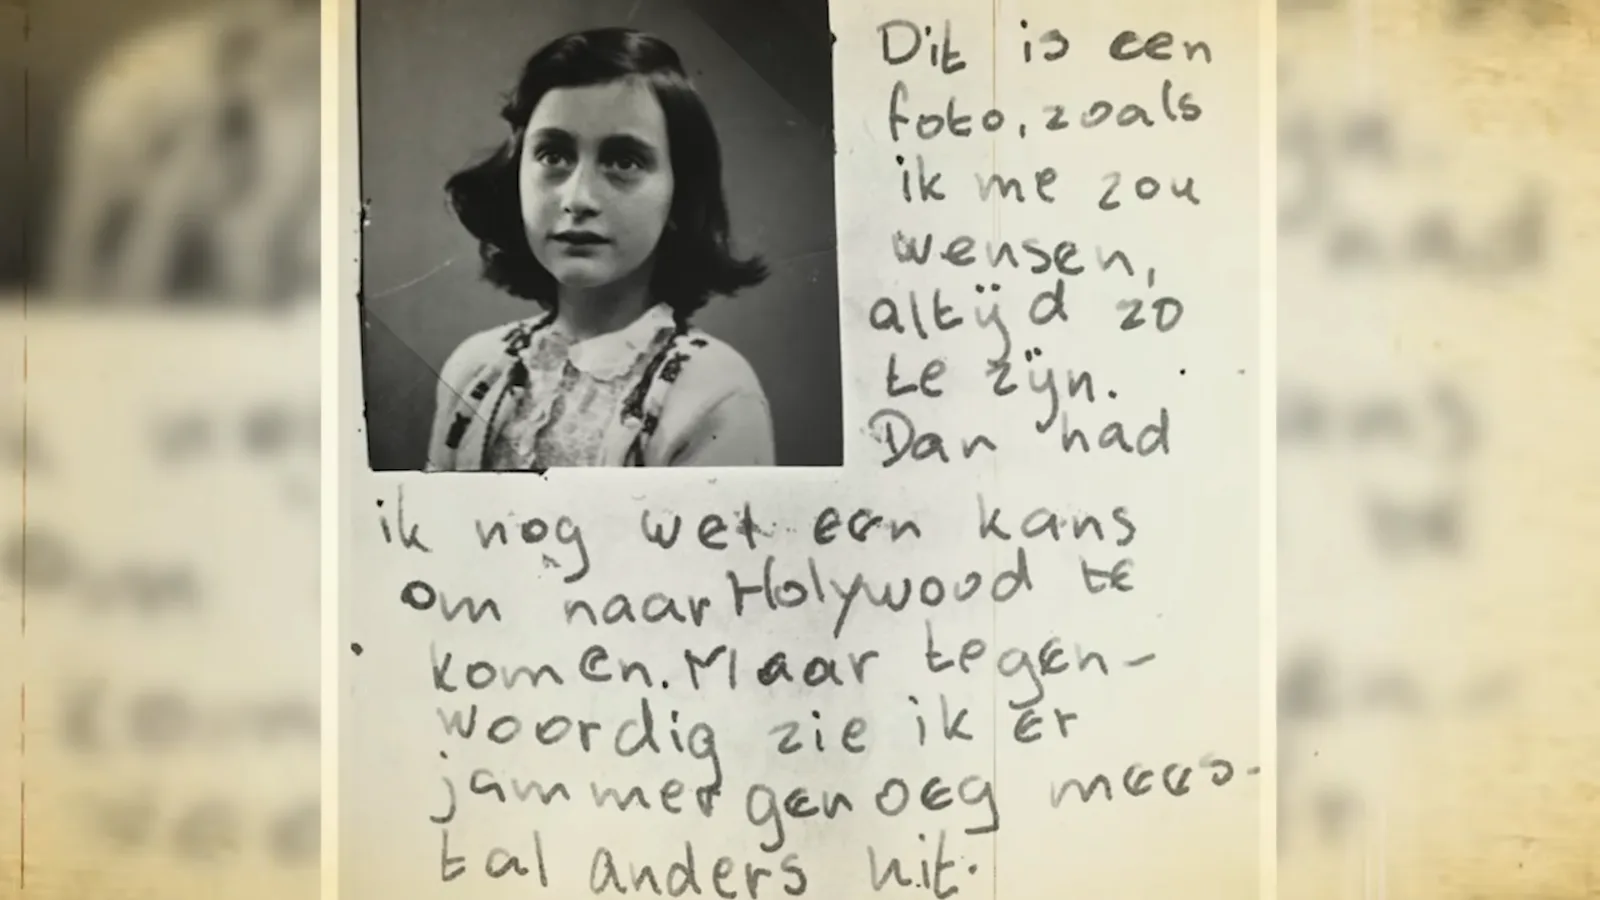 Dit is een
foto, zoals
ik me zou
wensen,
altijd zo
te zijn.
Dan had
ik nog wel een kans
om naar Holywood te
komen. Maar tegen-
woordig zie ik er
jammer genoeg mees-
tal anders uit.